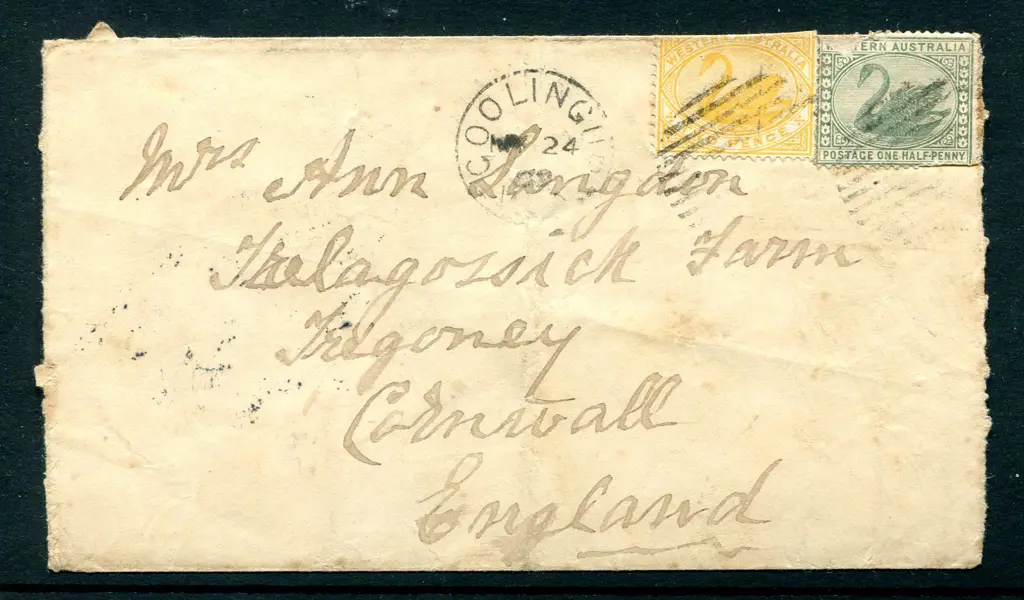 WESTERN AUSTRALIA
PENCE
ERN AUSTRALIA
POSTAGE ONE HALF-PENNY
24
Mrs Ann Langdon
Trelagossick Farm
Tregoney
Cornwall
England